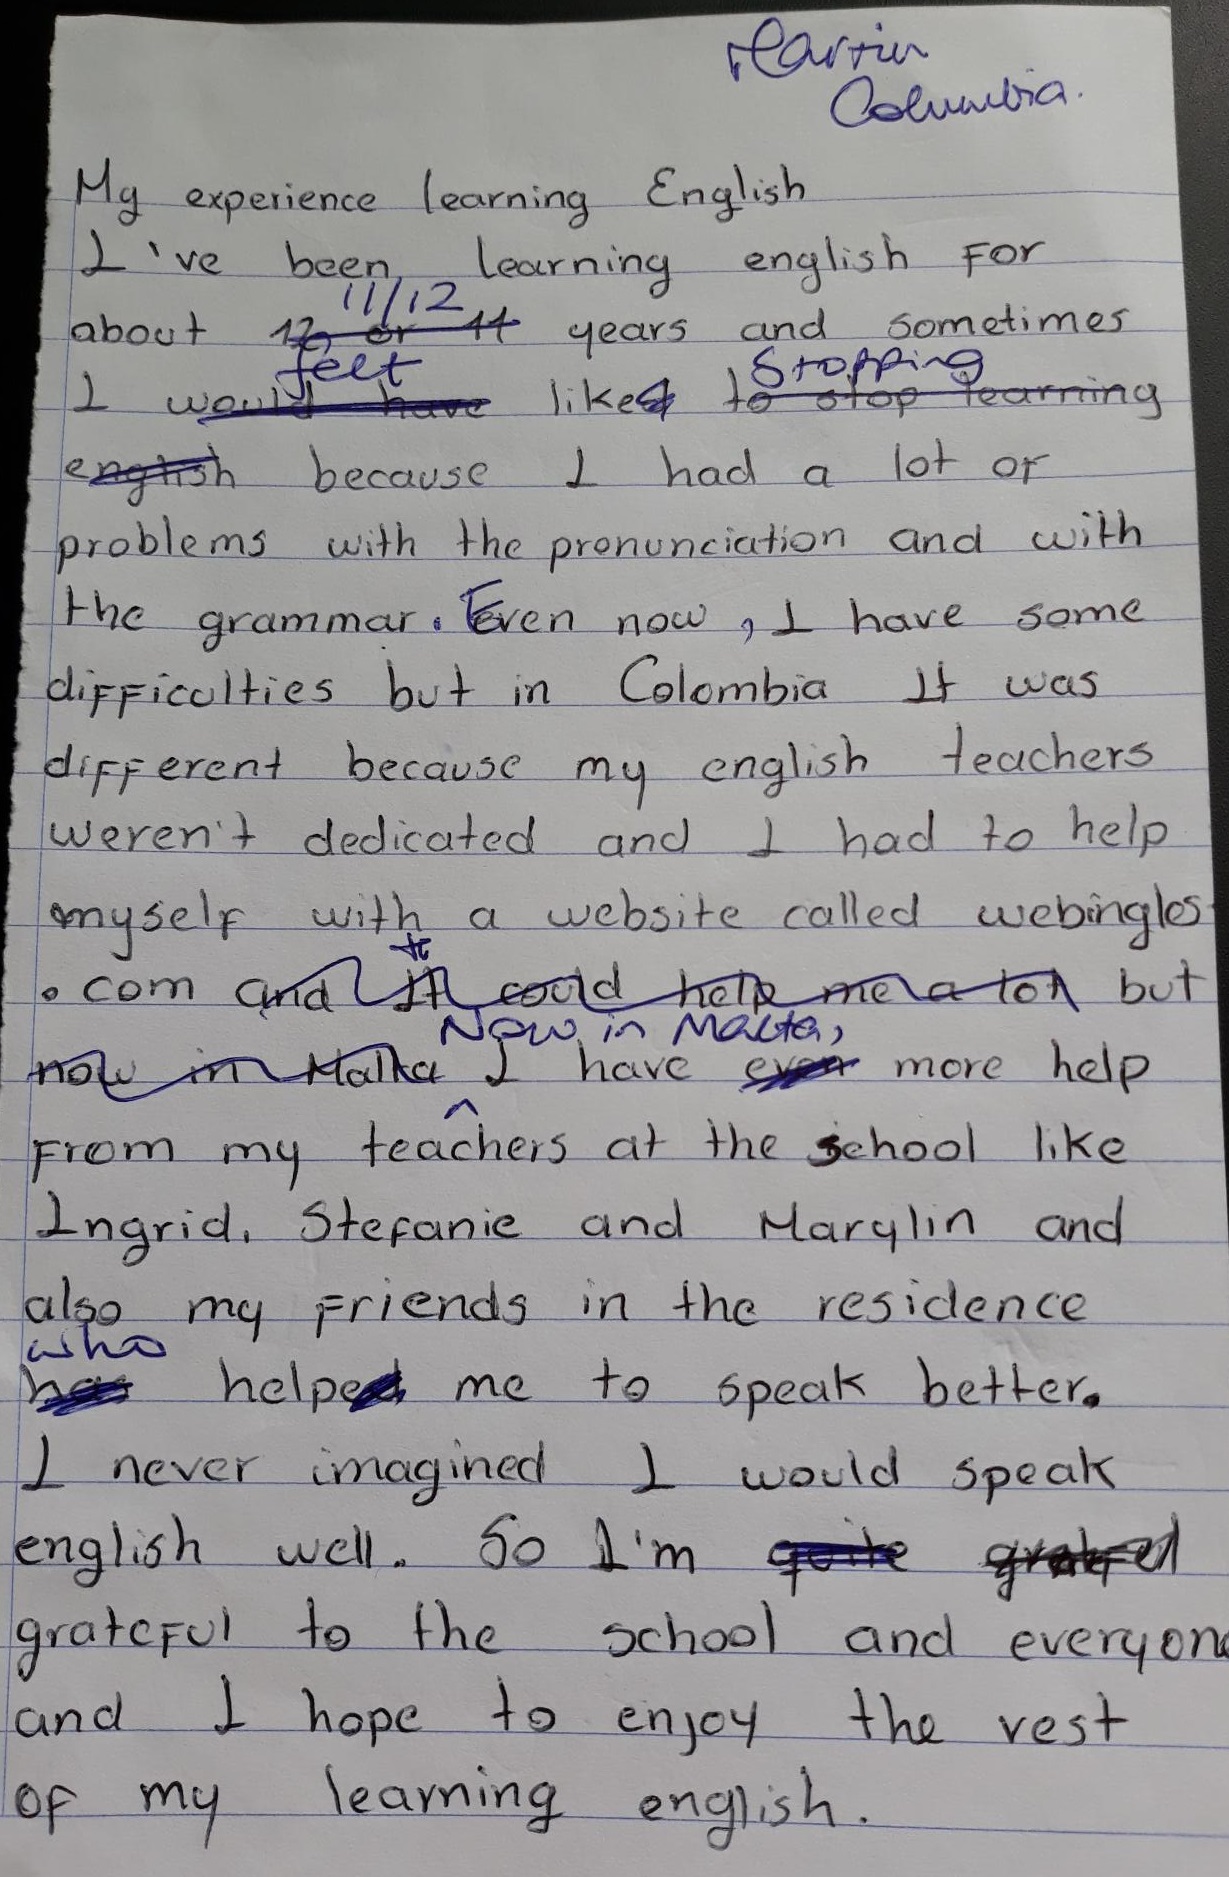 Martin
Columbia.
My experience learning English
I've been learning english for
11/12
about 12 or 11 years and sometimes
felt stopping
I would have liked to stop learning
english because I had a lot of
problems with the pronunciation and with
the grammar. Even now, I have some
difficulties but in Colombia It was
different because my english teachers
weren't dedicated and I had to help
myself with a website called webingles
.com and It could help me a lot but
Now in Malta,
now in Malta I have even more help
from my teachers at the school like
Ingrid, Stefanie and Marylin and
also my friends in the residence
who
has helped me to speak better.
I never imagined I would speak
english well. So I'm quite
grateful to the school and everyone
and I hope to enjoy the rest
of my learning english.